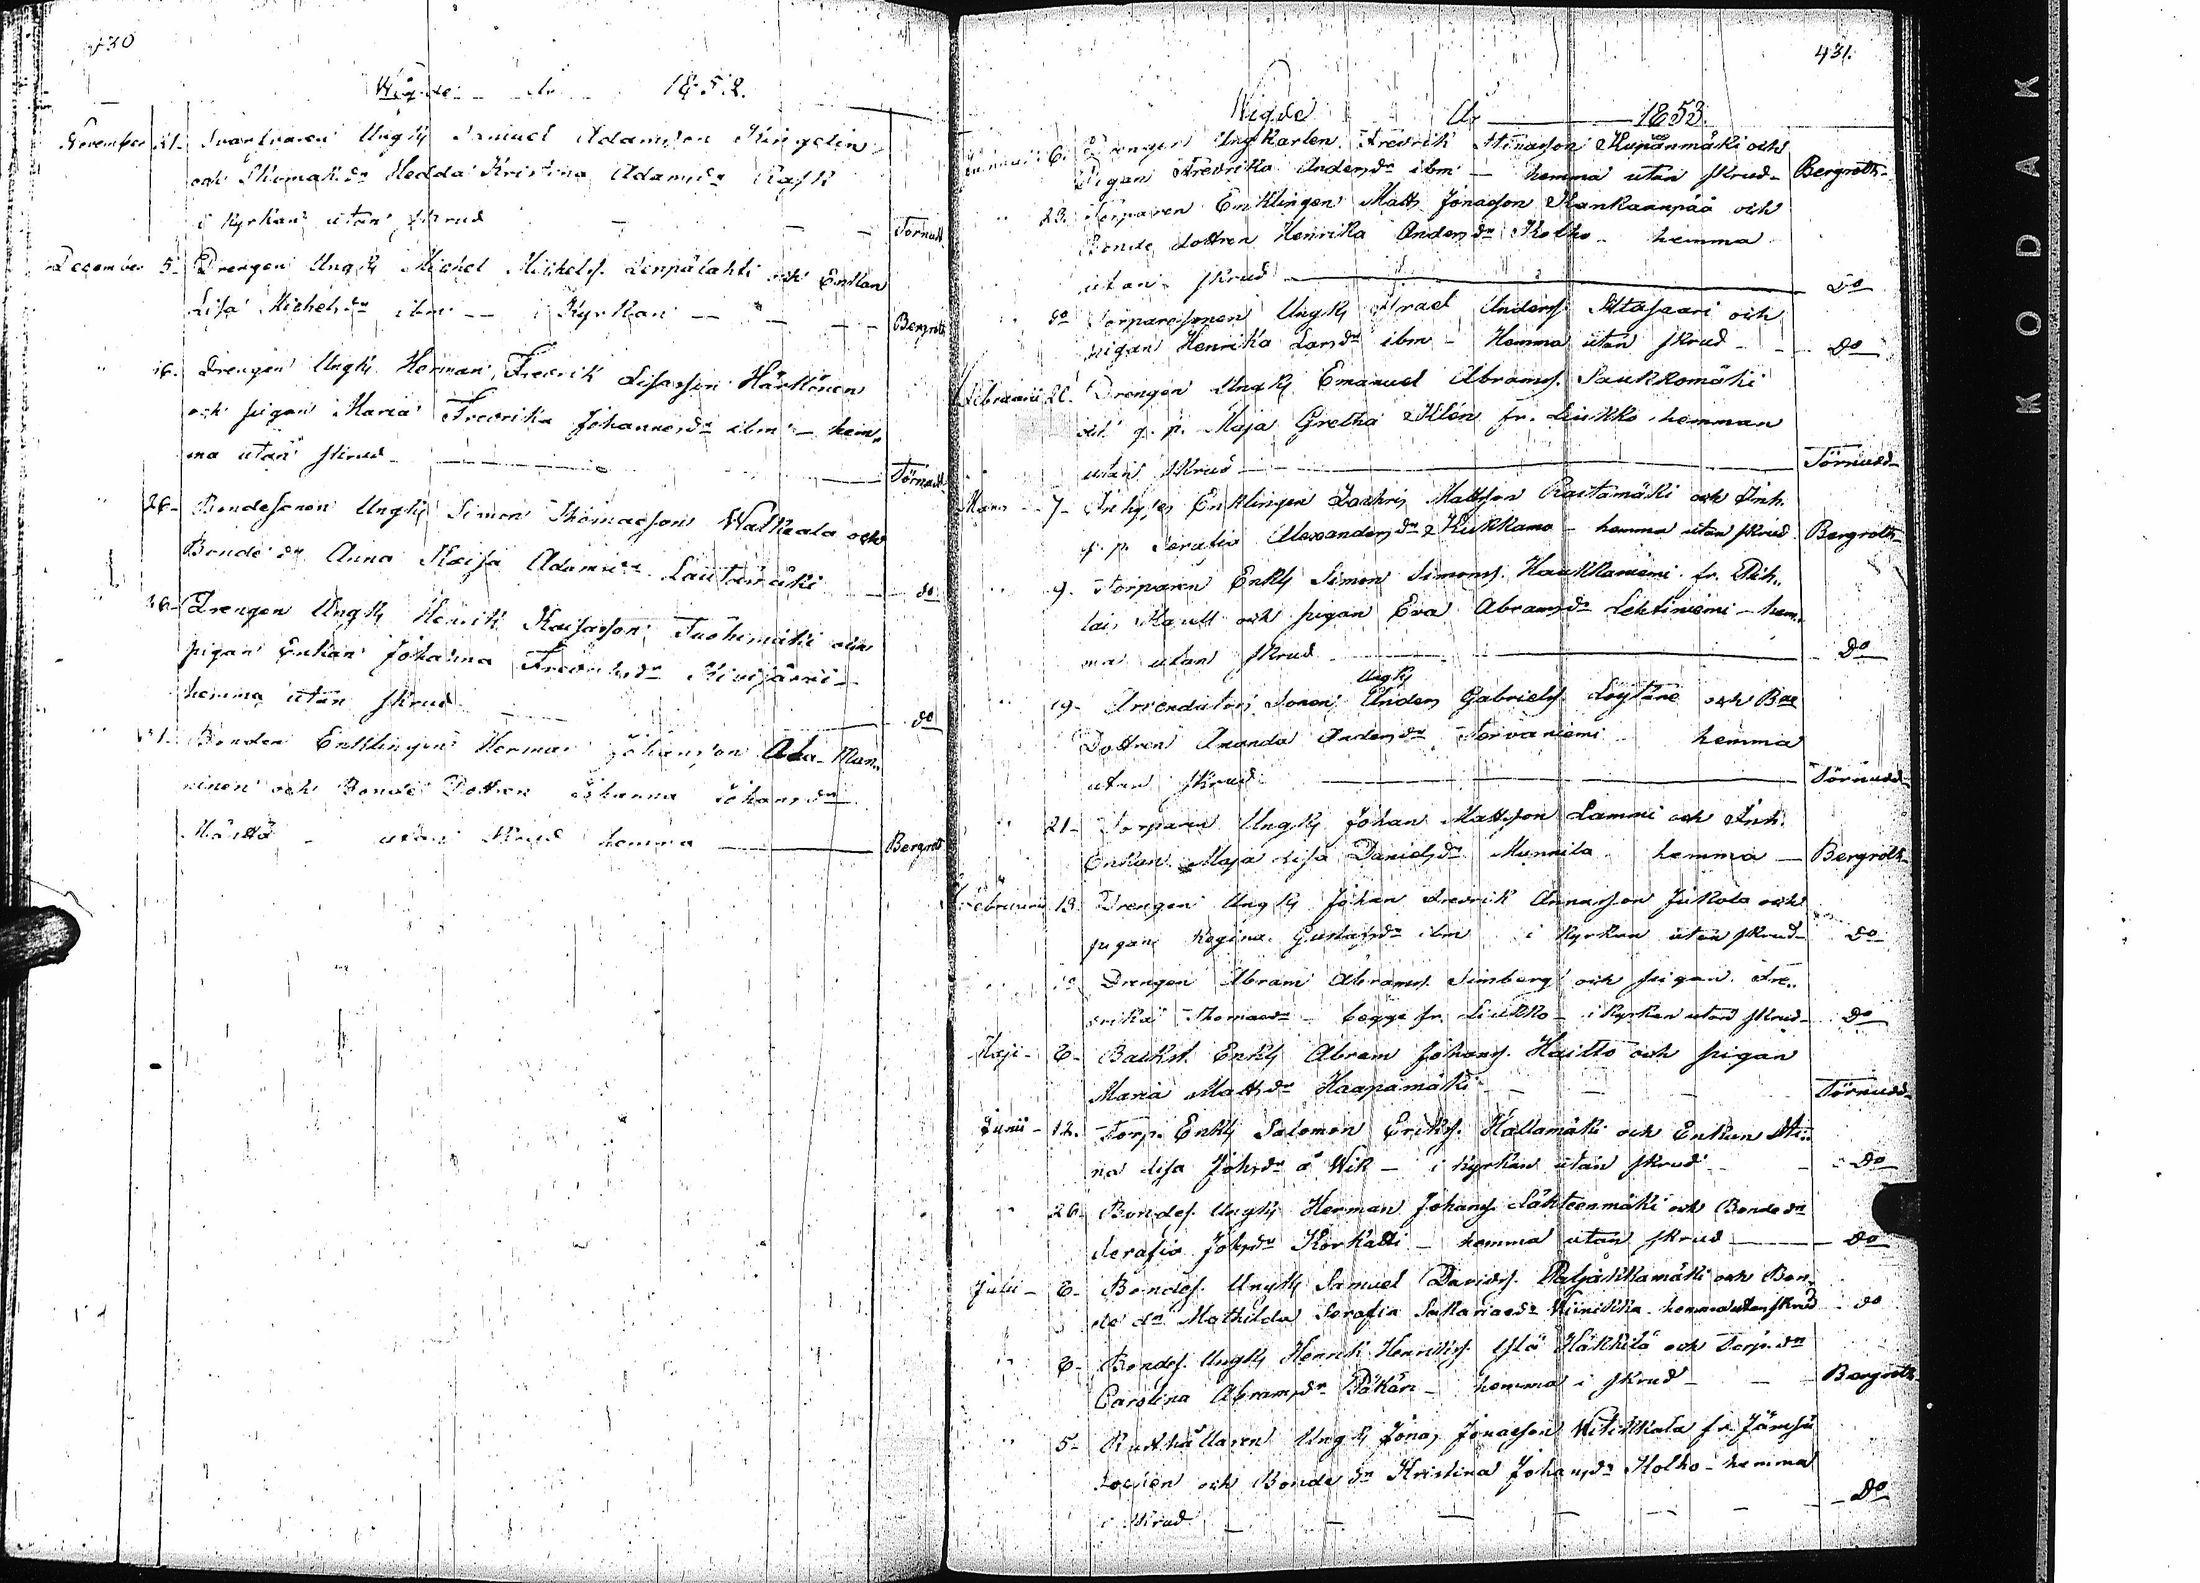 430
Wigde År 1852.
November 21. Svarfvaren Ungk. Samuel Adamsson Ringelin
och Skomak.dr Hedda Kristina Adamsdr Rask
i Kyrkan utan skrud — — — Törnudd
December 5. Drengen Ungk. Michel Michels. Linpälahti och Enkan
Lisa Michelsdr ibm — i Kyrkan — — Bergroth
" 16. Drengen Ungk. Herman Fredrik Lisasson Härkönen
och pigan Maria Fredrika Johannesdr ibm — hem-
ma utan skrud — Törnudd
" 26. Bondesonen Ungk. Simon Thomasson Walkeala och
Bonde dr Anna Kaisa Adamsdr Lautamäki — do
" 26. Drengen Ungk. Henrik Kaisasson Tuohimäki och
pigan Enkan Johanna Fredriksdr Kivijärvi —
hemma utan skrud — do
" 31. Bonden Enklingen Herman Johansson Ala-Man-
ninen och Bonde Dottren Johanna Johansdr
Määttä — utan skrud hemma — Bergroth
431.
Wigde År 1853.
Januarii 6. Drengen Ungkarlen Fredrik Stinasson Kupanmäki och
Pigan Fredrika Andersdr ibm — hemma utan skrud — Bergroth
" 23. Torparen Enklingen Matts Jonasson Kankaanpää och
Bonde dottren Henrika Andersdr Kolho — hemma
utan skrud — Do
" do Torparesonen Ungk. Israel Anders. Iltasaari och
pigan Henrika Larsdr ibm — Hemma utan skrud — Do
Februarii 20. Drengen Ungk. Emanuel Abrams. Saukkomäki
och q. p. Maja Gretha Kilén fr. Liukko hemman
utan skrud — Törnudd
Mars 7. Inhyses Enklingen Zachris Mattsson Rautamäki och Inh.
q. p. Serafia Alexandersdr Kukkamo — hemma utan skrud Bergroth
" 9. Torparen Enkl. Simon Simons. Haukkaniemi fr. Pih-
lais Kapell och pigan Eva Abramsdr Lehtiniemi — hem-
ma utan skrud — Do
" 19. Arrendators Sonen Ungk. Anders Gabriels. Löytäne och Bde
Dottren Amanda Andersdr Torvaniemi hemma
utan skrud — Törnudd
" 21. Torparen Ungk. Johan Mattsson Lammi och Inh.
Enkan Maja Lisa Danielsdr Mannila hemma — Bergroth
Februarii 13. Drengen Ungk. Johan Fredrik Annasson Jukola och
pigan Regina Gustafsdr ibm i Kyrkan utan skrud — do
" do Drengen Abram Abrams. Simberg och pigan Fre-
drika Thomasdr — begge fr. Liukko — i Kyrkan utan skrud — Do
Maji 6. Backst. Enkl. Abram Johans. Haitto och pigan
Maria Mattsdr Haapamäki — — — Törnudd
Junii 12. Torp. Enkl. Salomon Eriks. Hallamäki och Enkan Sti-
na Lisa Johsdr å Wik — i Kyrkan utan skrud — Do
" 26. Bondes. Ungk. Herman Johans. Lähteenmäki och Bonde dr
Serafia Johsdr Korkatti — hemma utan skrud — Do
Julii 6. Bondes. Ungk. Samuel Davids. Paljakkamäki och Bon-
de dr Mathilda Serafia Sakariasdr Viinikka hemma utan skrud — do
" 6. Bondes. Ungk. Henrik Henriks. Ylä Häkkilä och Torp. dr
Carolina Abramsdr Pökäri — hemma i skrud — Bergroth
" 5. Rusthållaren Ungk. Jonas Jonasson Witikkala fr. Jämsä
Socken och Bonde dr Kristina Johansdr Kolho — hemma
i skrud — — — Do
KODAK